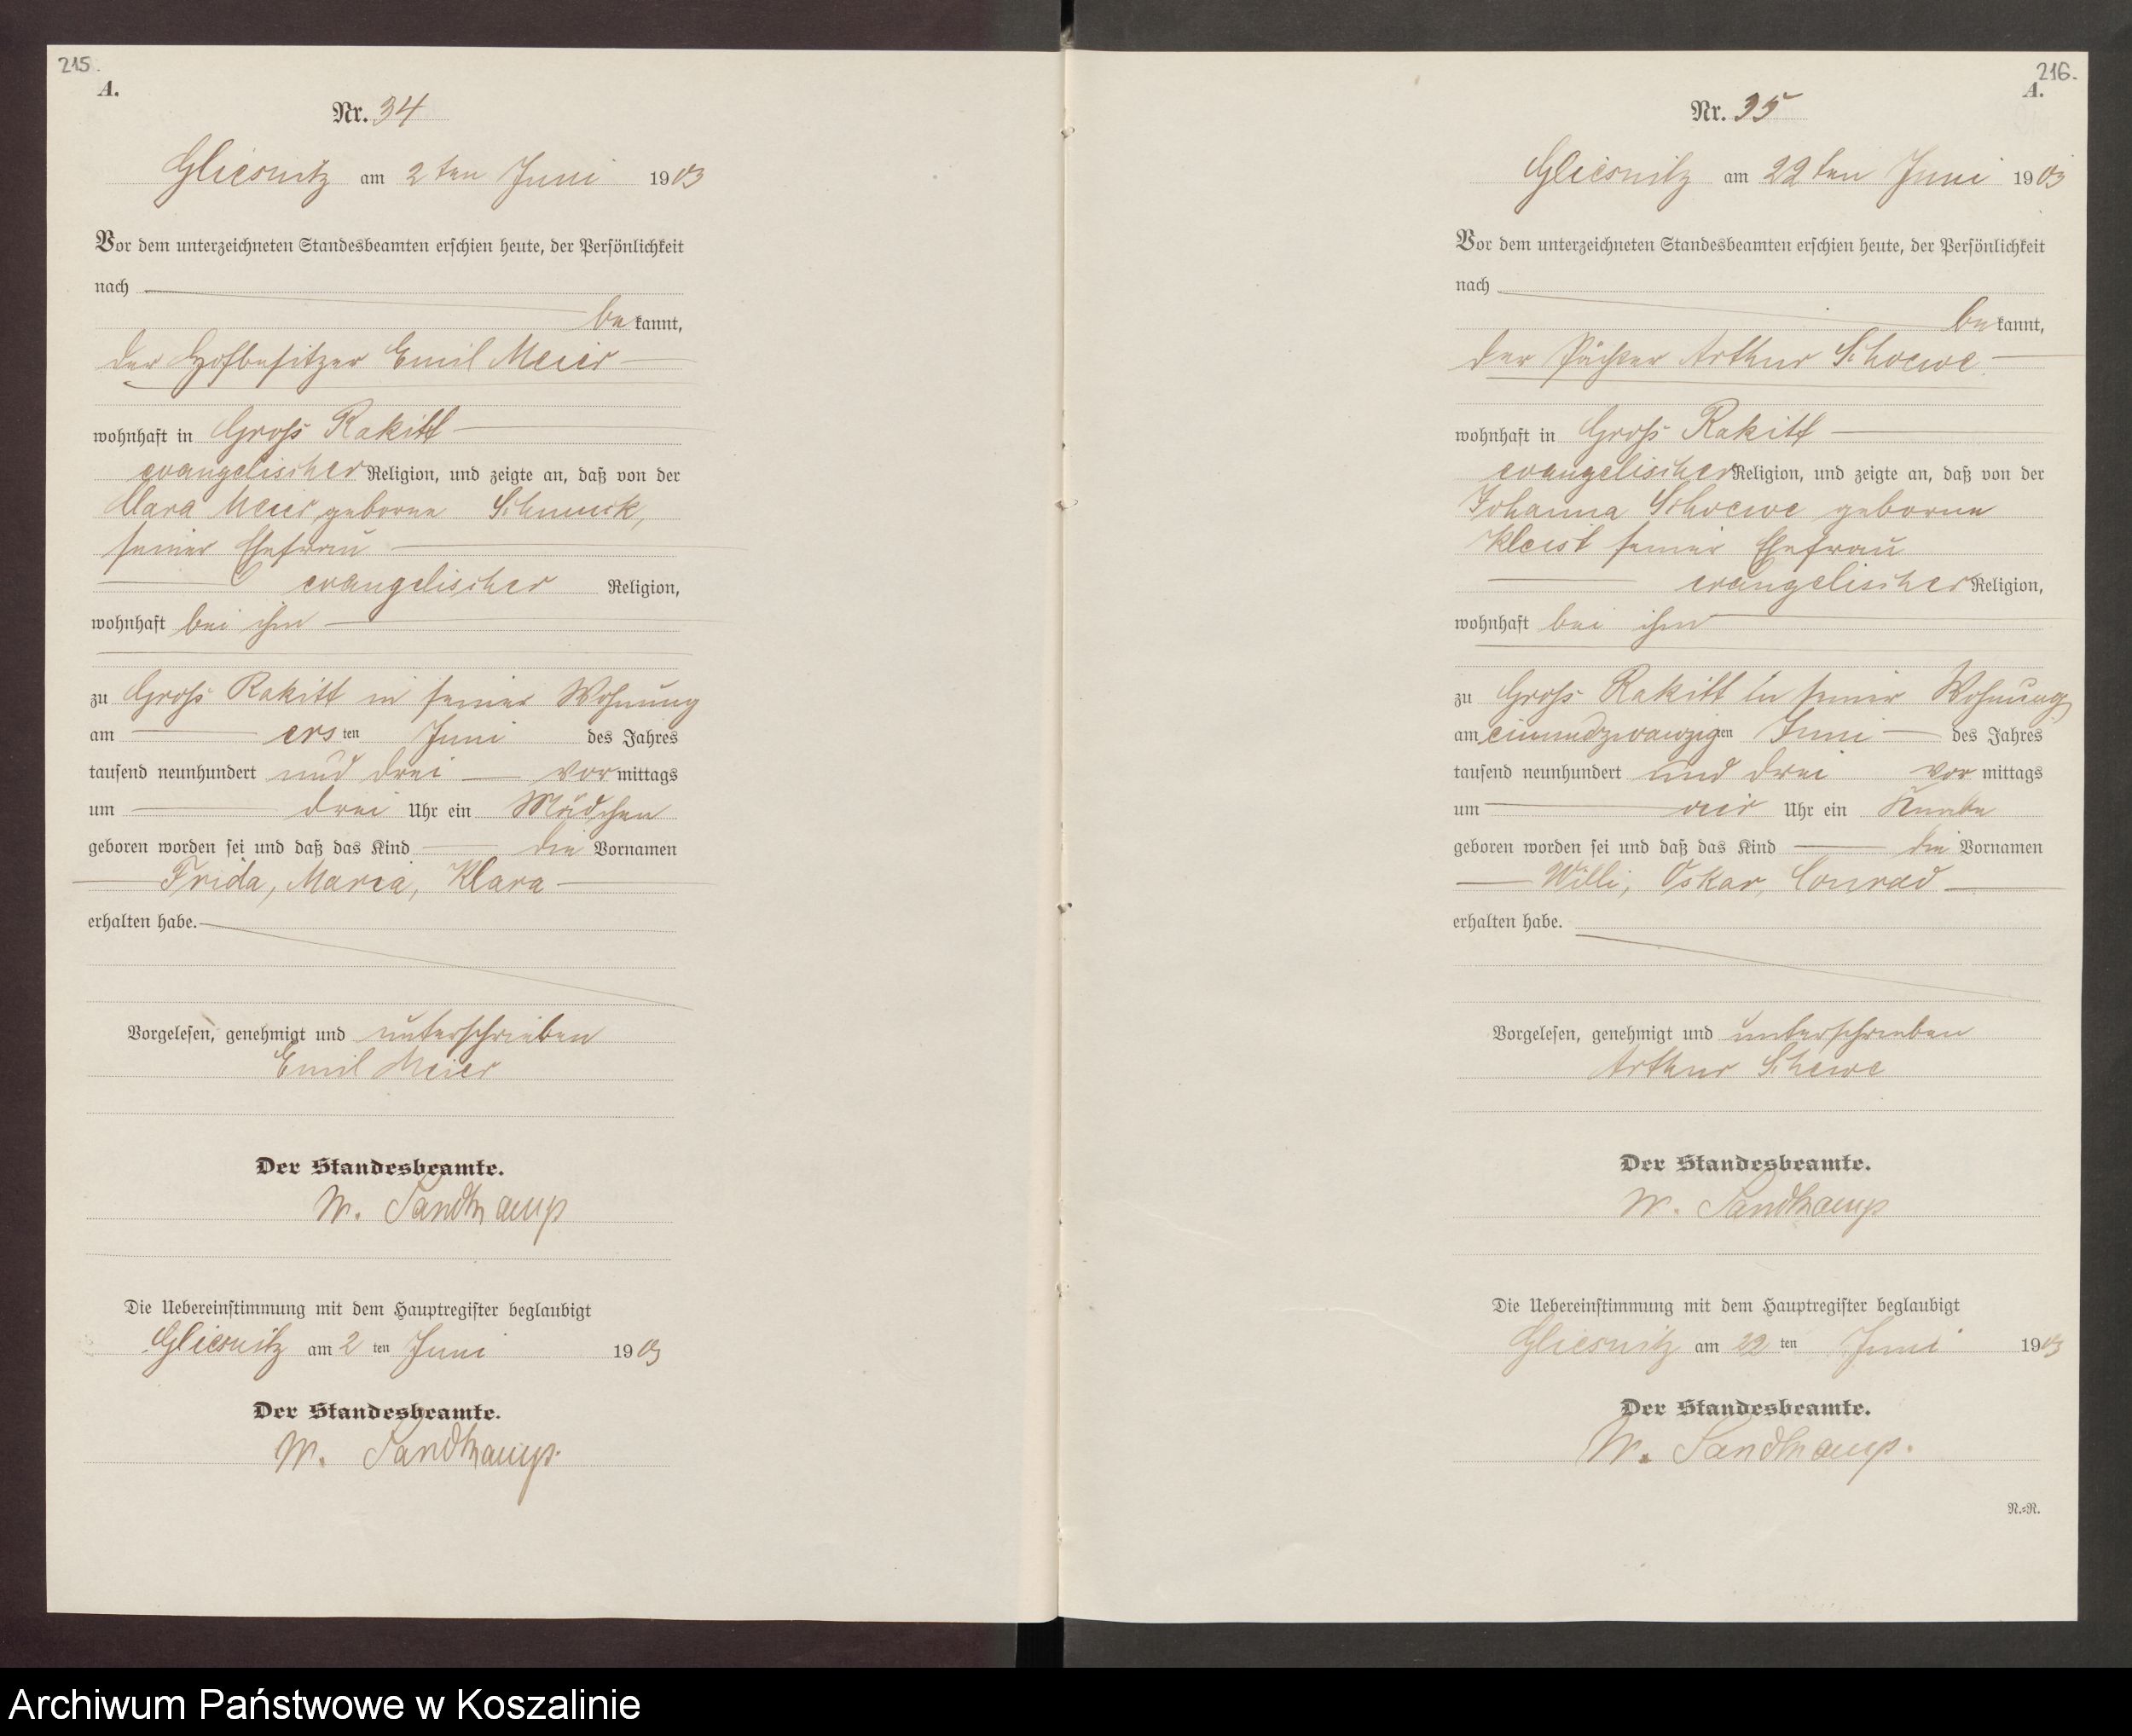 215.
A.
Nr. 34
Gliesnitz am 2ten Juni 1903
Vor dem unterzeichneten Standesbeamten erschien heute, der Persönlichkeit
nach
bekannt,
der Hofbesitzer Emil Meier
wohnhaft in Groß Rakitt
evangelischer Religion, und zeigte an, daß von der
Clara Meier, geborne Schmuck,
seiner Ehefrau
evangelischer Religion,
wohnhaft bei ihm
zu Groß Rakitt in seiner Wohnung
am ersten Juni des Jahres
tausend neunhundert und drei vormittags
um drei Uhr ein Mädchen
geboren worden sei und daß das Kind die Vornamen
Frida, Maria, Klara
erhalten habe.
Vorgelesen, genehmigt und unterschrieben
Emil Meier
Der Standesbeamte.
W. Sandkamp
Die Uebereinstimmung mit dem Hauptregister beglaubigt
Gliesnitz am 2 ten Juni 1903
Der Standesbeamte.
W. Sandkamp.
216.
A.
Nr. 35
Gliesnitz am 22ten Juni 1903
Vor dem unterzeichneten Standesbeamten erschien heute, der Persönlichkeit
nach
bekannt,
der Pächter Arthur Schoewe
wohnhaft in Groß Rakitt
evangelischer Religion, und zeigte an, daß von der
Johanna Schoewe geborne
Kleist seiner Ehefrau
evangelischer Religion,
wohnhaft bei ihm
zu Groß Rakitt in seiner Wohnung
am einundzwanzigten Juni des Jahres
tausend neunhundert und drei vormittags
um vier Uhr ein Knabe
geboren worden sei und daß das Kind die Vornamen
Willi, Oskar, Conrad
erhalten habe.
Vorgelesen, genehmigt und unterschrieben
Arthur Schewe
Der Standesbeamte.
W. Sandkamp
Die Uebereinstimmung mit dem Hauptregister beglaubigt
Gliesnitz am 22 ten Juni 1903
Der Standesbeamte.
W. Sandkamp.
N.=R.
Archiwum Państwowe w Koszalinie